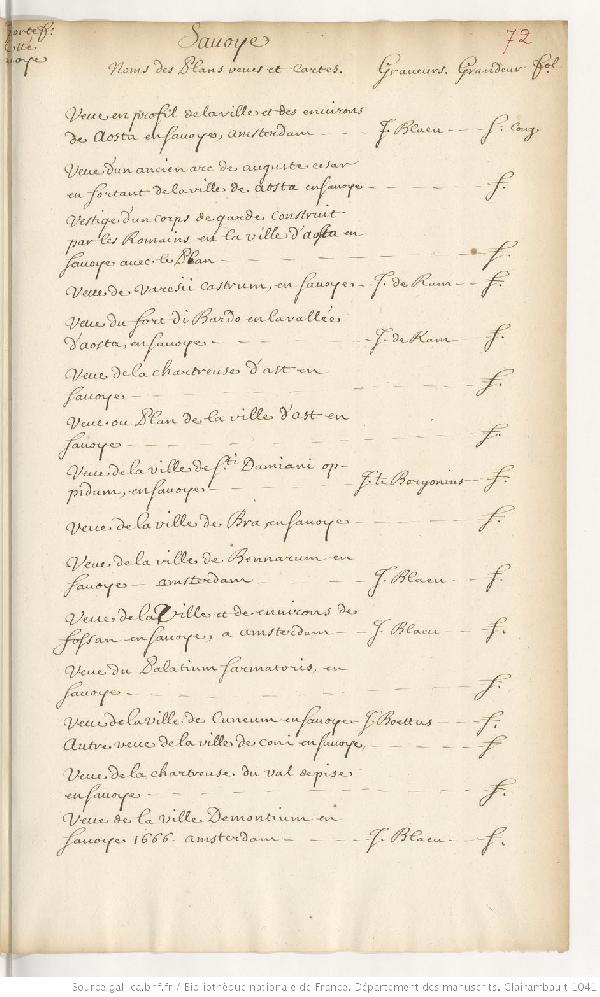 portef.
Savoye 72
Noms des Plans veues et Cartes. Graveurs. Grandeur fol.
Veue en profil de la ville et des environs
de Aosta en savoye, amsterdam - - - J. Blaeu - - - f. Long.
Veue d'un ancien arc de auguste cesar
en sortant de la ville de aosta en savoye - - - f.
Vestige d'un corps de garde construit
par les Romains en la ville d'aosta en
savoye avec le Plan - - - f.
Veue de Varesii castrum, en savoye - J. de Ram - - f.
Veue du fort di Bardo en la vallée
d'aosta, en savoye - - - J. de Ram - - f.
Veue de la chartreuse d'ast en
savoye - - - f.
Veue ou Plan de la ville d'ast en
savoye - - - f.
Veue de la ville de S.ti Damiani op-
pidum, en savoye - - - J. te Borgonius - f.
veue de la ville de Bra, en savoye - - - f.
Veue de la ville de Bennarum en
savoye - amsterdam - - - J. Blaeu - - f.
Veue de la Ville et de environs de
fossan en savoye, a amsterdam - - J. Blaeu - - f.
Veue du Palatium sarmatoris, en
savoye - - - f.
Veue de la ville de Cuneum en savoye - J. Boettus - - f.
Autre veue de la ville de coni en savoye, - - - f
Veue de la chartreuse du val de pise
en savoye - - - f.
Veue de la ville Demontium en
savoye 1666. amsterdam - - - J. Blaeu - - f.
Source gallica.bnf.fr / Bibliothèque nationale de France. Département des manuscrits. Clairambault 1041